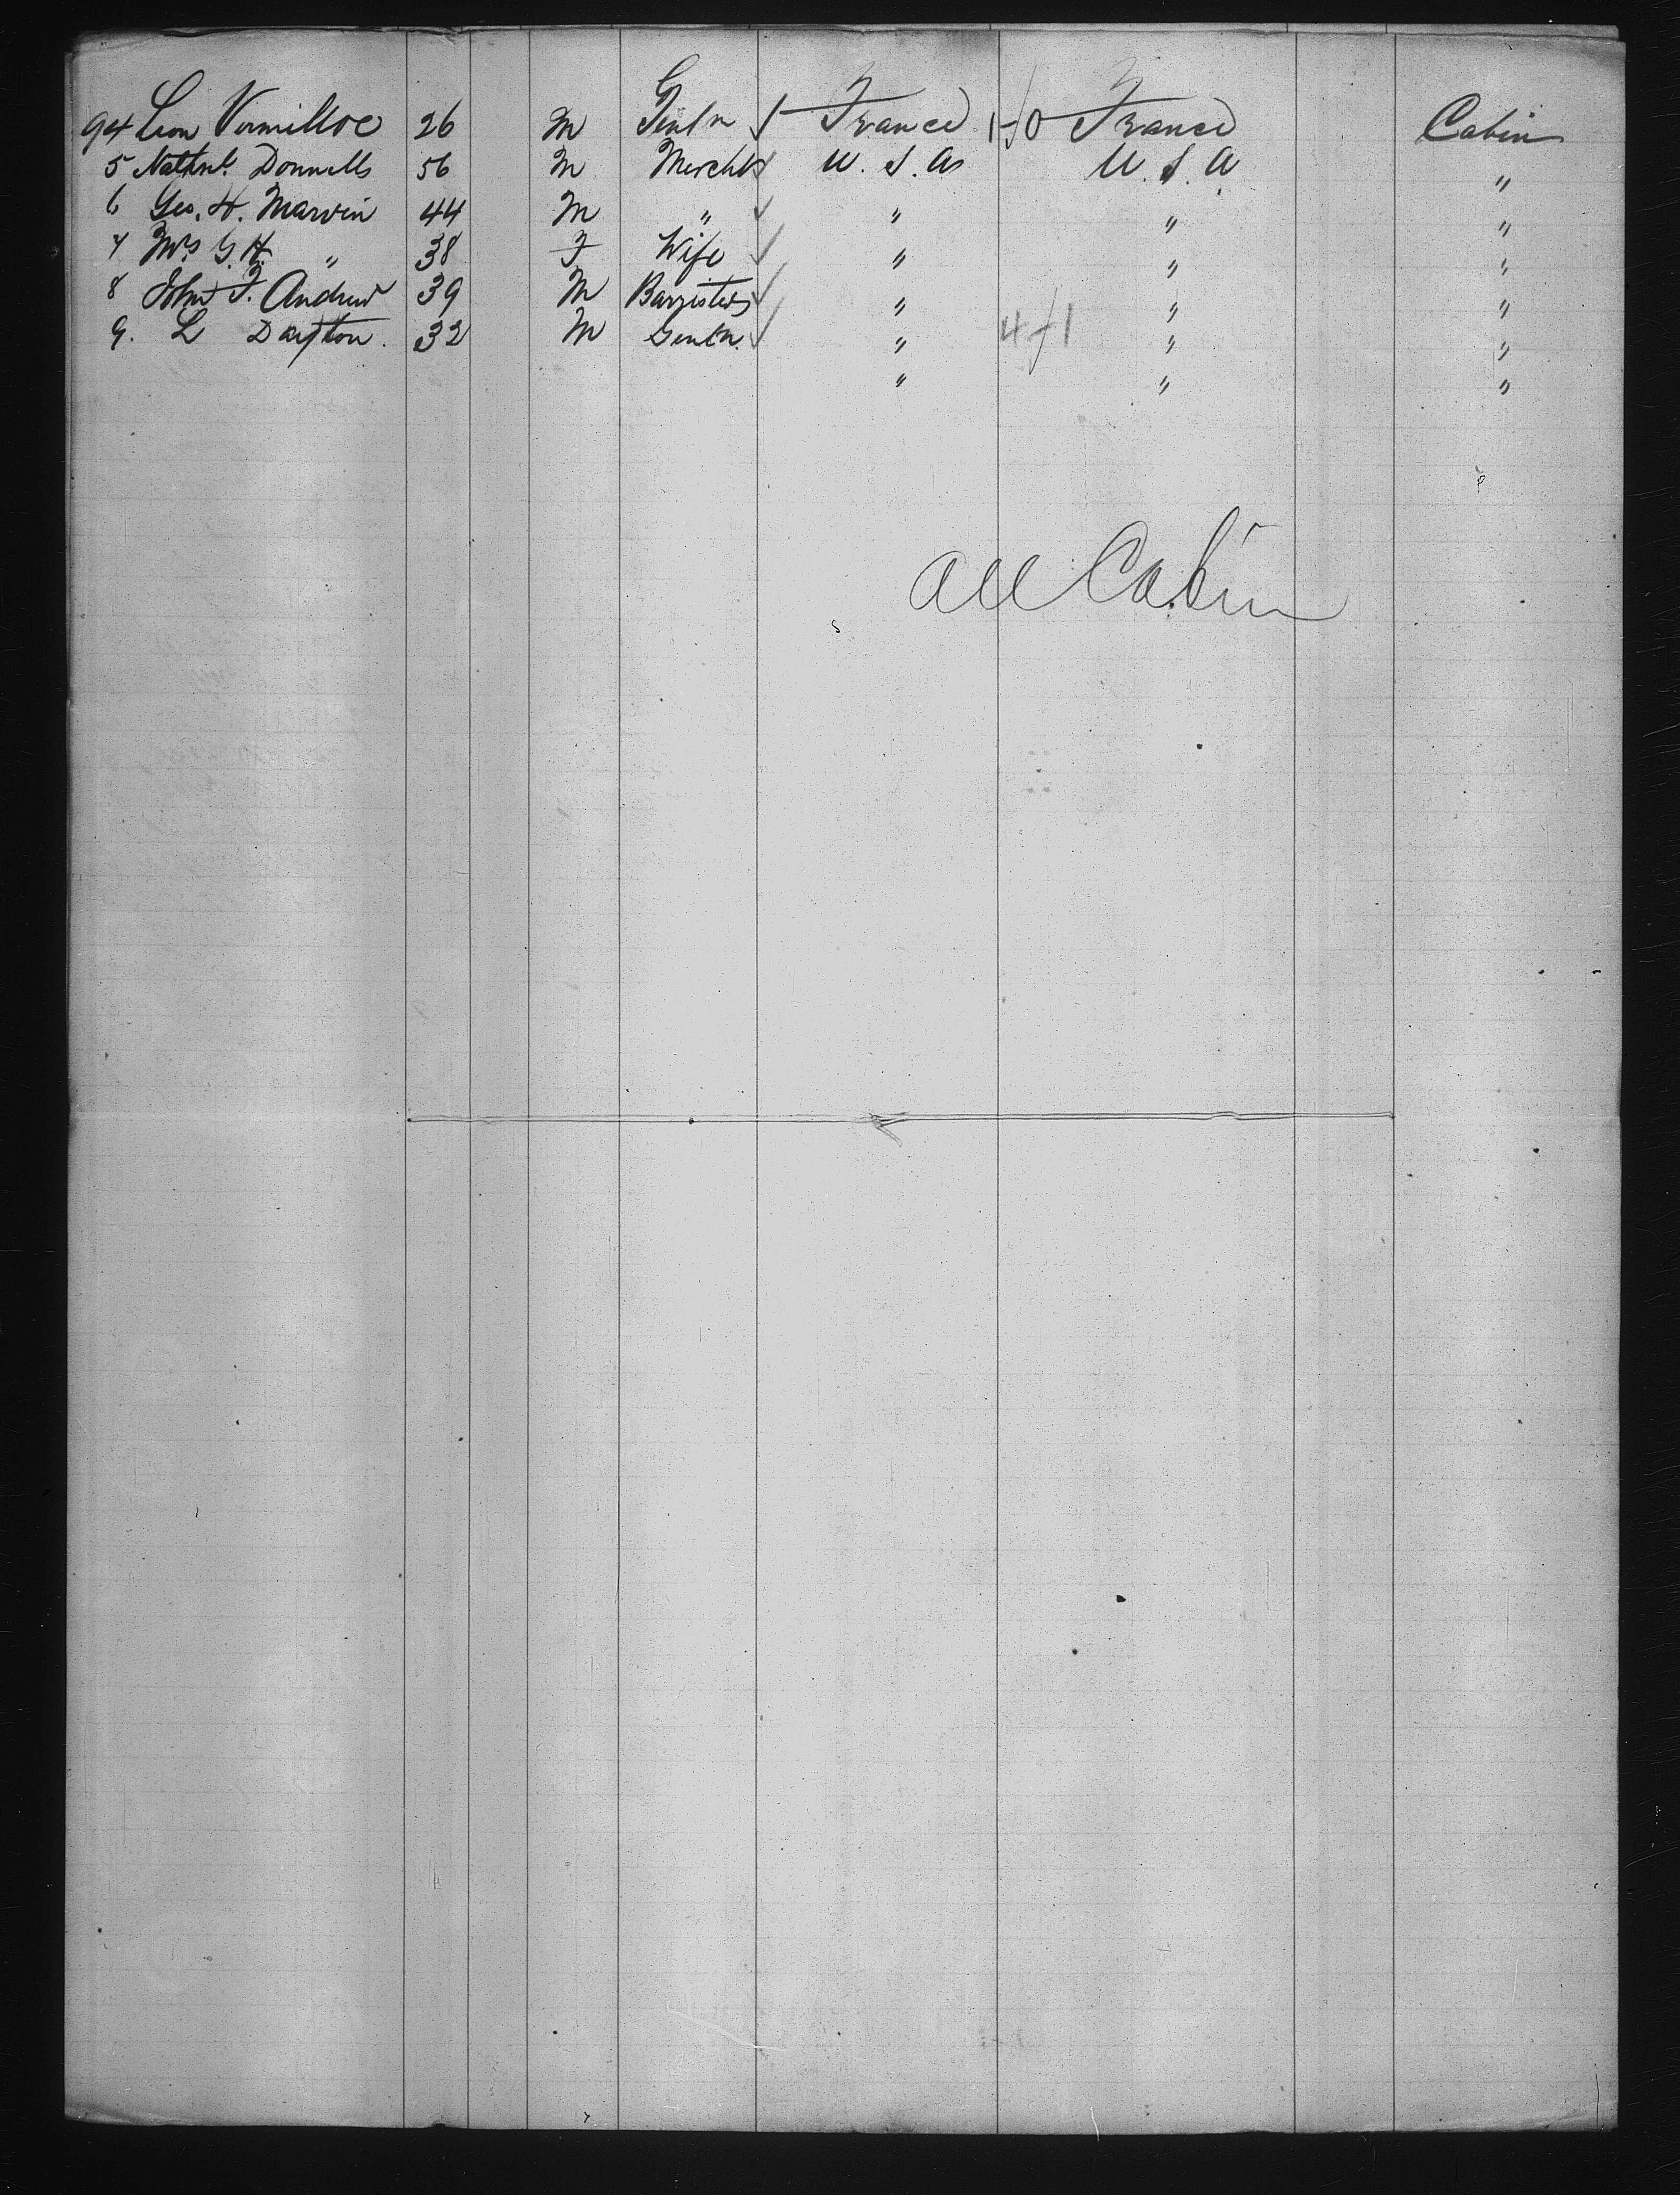 94 Leon Vermilloe 26 M Gentn France 1-0 France Cabin
5 Nathnl. Donnells 56 M Mercht U. S. A U. S. A "
6 Geo. H. Marvin 44 M " " " "
7 Mrs G. H. " 38 F Wife " " "
8 John F. Andrew 39 M Barrister " " "
9. L Dayton. 32 M Gentn. " 4-1 " "
" " "
All Cabin